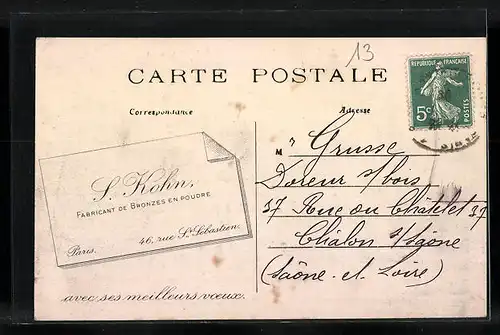 13
CARTE POSTALE
Correspondance
Adresse
REPUBLIQUE FRANÇAISE
5c
POSTES
S. Kohn,
FABRICANT DE BRONZES EN POUDRE
46, rue St Sébastien
Paris.
avec ses meilleurs vœux.
Mr Grusse
Doreur s/bois
37 Rue du Châtelet 37
Châlon s/Saône
(Saône et Loire)